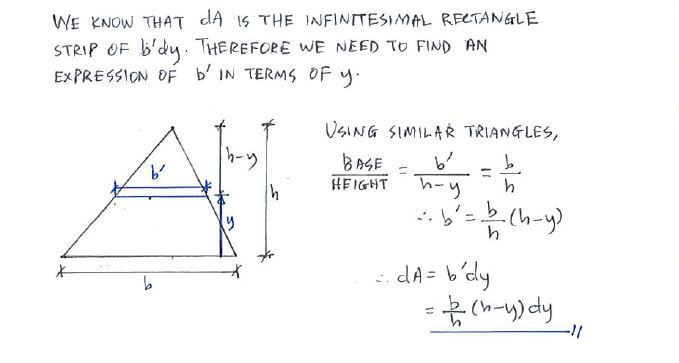 WE KNOW THAT dA IS THE INFINITESIMAL RECTANGLE
STRIP OF b'dy. THEREFORE WE NEED TO FIND AN
EXPRESSION OF b' IN TERMS OF y.
USING SIMILAR TRIANGLES,
BASE/HEIGHT = b'/(h-y) = b/h
∴ b' = b/h (h-y)
∴ dA = b'dy
= b/h (h-y) dy
b'
h-y
h
y
b